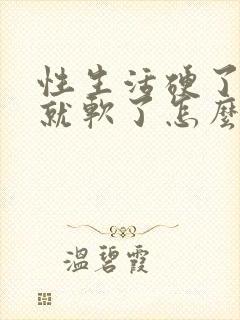 性生活硬了
就軟了怎麼
溫碧霞